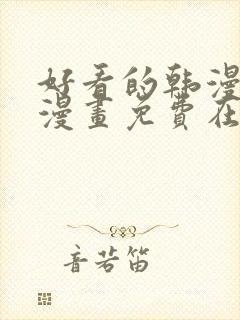 好看的韩漫
漫畫免費在
音若笛